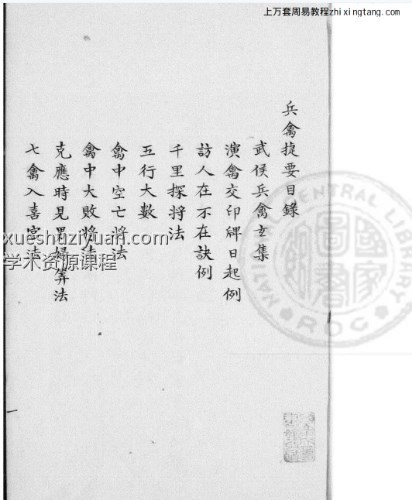 上万套周易教程zhixingtang.com
兵禽捷要目錄
武侯兵禽玄集
演禽交印碑日起例
訪人在不在訣例
千里探將法
五行大數
禽中空亡將法
禽中大敗將法
克應時見男婦等法
七禽入喜宮法
一
xueshuziyuan.com
学术资源课程
NATIONAL CENTRAL LIBRARY
ROC